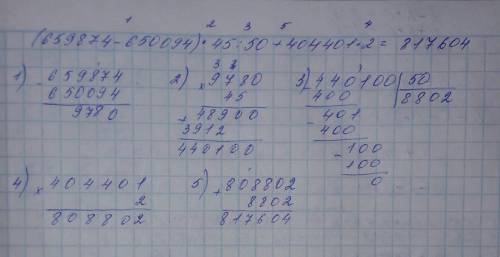 1 2 3 5 4
(659874-650094)·45:50+404401·2=817604
1) 659874
- 650094
9780
2) 3 4
× 9780
45
+ 48900
3912
440100
3) - 440100 | 50
400 8802
- 401
400
- 100
100
0
4) × 404401
2
808802
5) + 808802
8802
817604